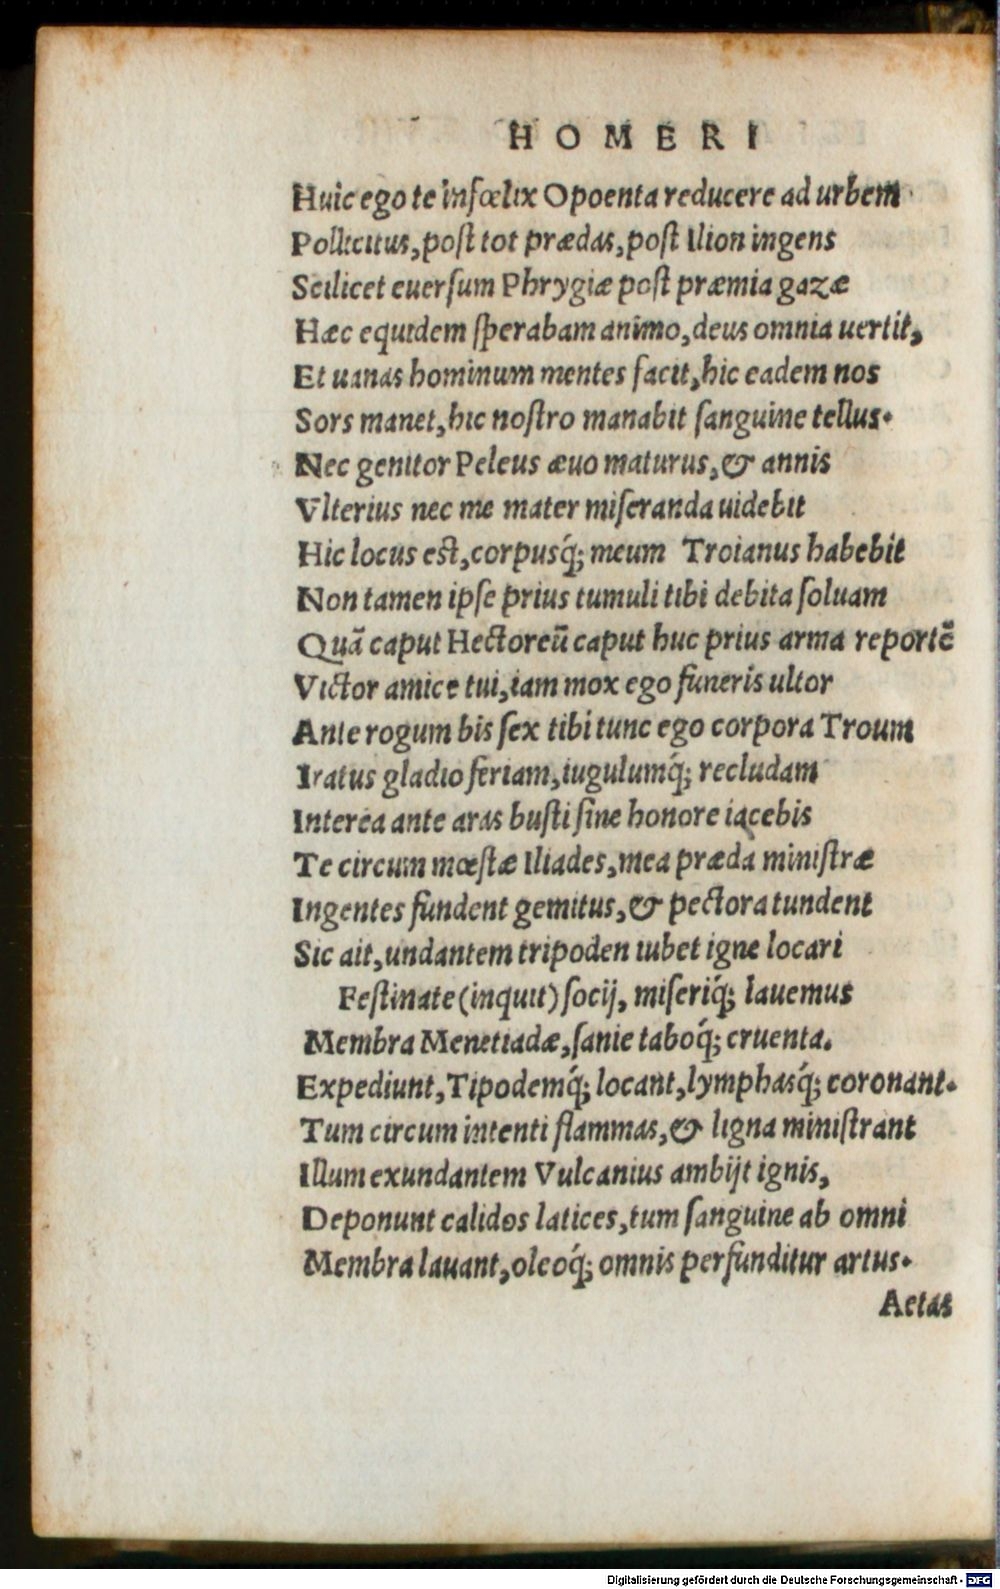 HOMERI
Huic ego te infœlix Opoenta reducere ad urbem
Pollicitus, post tot prædas, post Ilion ingens
Scilicet euersum Phrygiæ post præmia gazæ
Hæc equidem sperabam animo, deus omnia uertit,
Et uanas hominum mentes facit, hic eadem nos
Sors manet, hic nostro manabit sanguine tellus.
Nec genitor Peleus æuo maturus, & annis
Vlterius nec me mater miseranda uidebit
Hic locus est, corpusq́; meum Troianus habebit
Non tamen ipse prius tumuli tibi debita soluam
Quã caput Hectoreũ caput huc prius arma reportẽ
Victor amice tui, iam mox ego funeris ultor
Ante rogum bis sex tibi tunc ego corpora Troum
Iratus gladio feriam, iugulumq́; recludam
Interea ante aras busti sine honore iacebis
Te circum mœstæ Iliades, mea præda ministræ
Ingentes fundent gemitus, & pectora tundent
Sic ait, undantem tripoden iubet igne locari
Festinate (inquit) socij, miseriq́; lauemus
Membra Menetiadæ, sanie taboq́; cruenta.
Expediunt, Tipodemq́; locant, lymphasq́; coronant.
Tum circum intenti flammas, & ligna ministrant
Illum exundantem Vulcanius ambijt ignis,
Deponunt calidos latices, tum sanguine ab omni
Membra lauant, oleoq́; omnis perfunditur artus.
Aetas
Digitalisierung gefördert durch die Deutsche Forschungsgemeinschaft - DFG